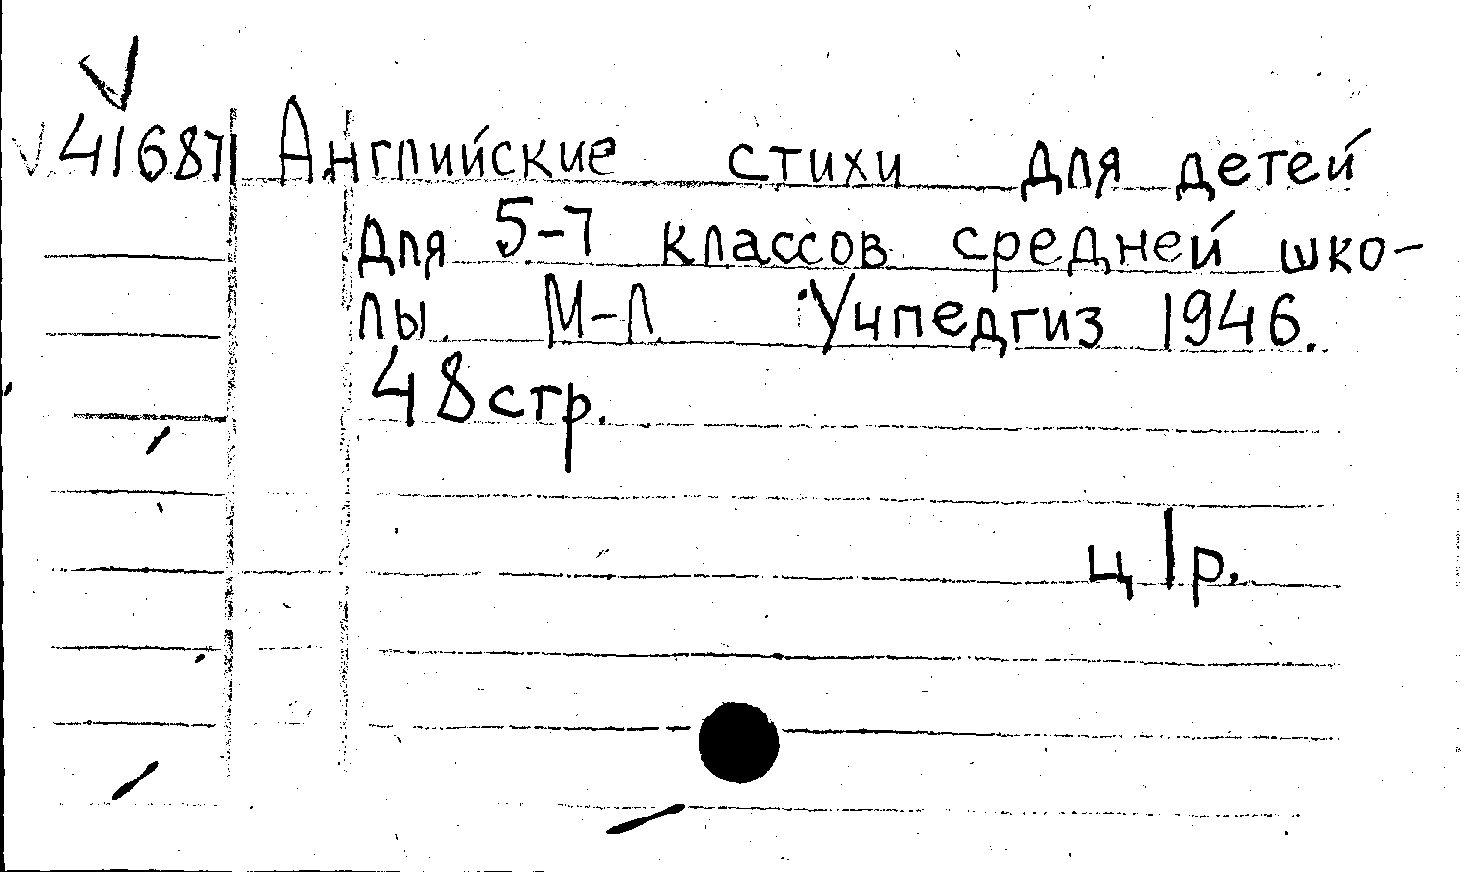 41687 Английские стихи для детей
для 5-7 классов средней шко-
лы. М-Л. Учпедгиз 1946.
48 стр.
ц 1р.